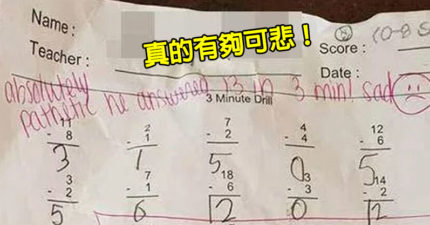 Name :
Teacher :
真的有夠可悲！
Score :
Date :
absolutely pathetic he answered 13 in 3 min! sad
3 Minute Drill
- 8
3
2
- 1
1
7
- 2
5
4
- 4
0
12
- 6
5
3
- 2
5
7
- 1
6
18
- 6
12
3
- 3
0
14
- 2
12